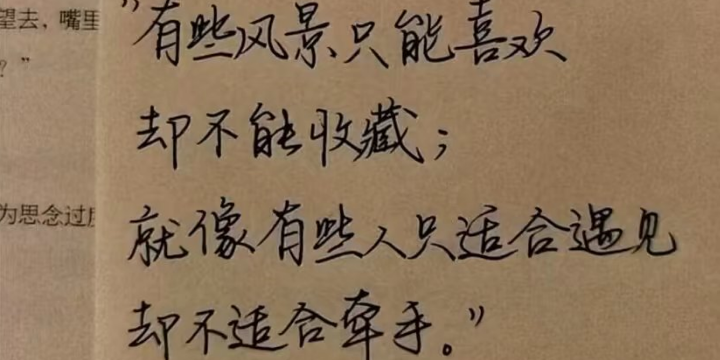 望去,嘴里
?”
为思念过度
“有些风景只能喜欢
却不能收藏;
就像有些人只适合遇见
却不适合牵手。”